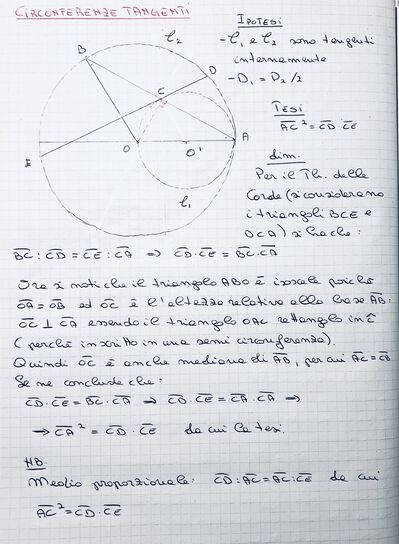 CIRCONFERENZE TANGENTI
IPOTESI
- C₁ e C₂ sono tangenti
internamente
- D₁ = D₂/2
TESI
AC² = CD · CE
dim.
Per il Th. delle
Corde (si considerano
i triangoli BCE e
DCA) si ha che:
B
C₂
D
C
E
O
O'
A
C₁
BC : CD = CE : CA ⇒ CD · CE = BC · CA
Ora si noti che il triangolo ABO è isoscele poiché
OA = OB ed OC è l'altezza relativa alla base AB:
OC ⊥ CA essendo il triangolo OAC rettangolo in Ĉ
(perché inscritto in una semi circonferenza).
Quindi OC è anche mediana di AB, per cui AC = CB
Se ne conclude che:
CD · CE = BC · CA ⇒ CD · CE = CA · CA ⇒
⇒ CA² = CD · CE da cui la tesi.
NB.
Medio proporzionale: CD : AC = AC : CE da cui
AC² = CD · CE